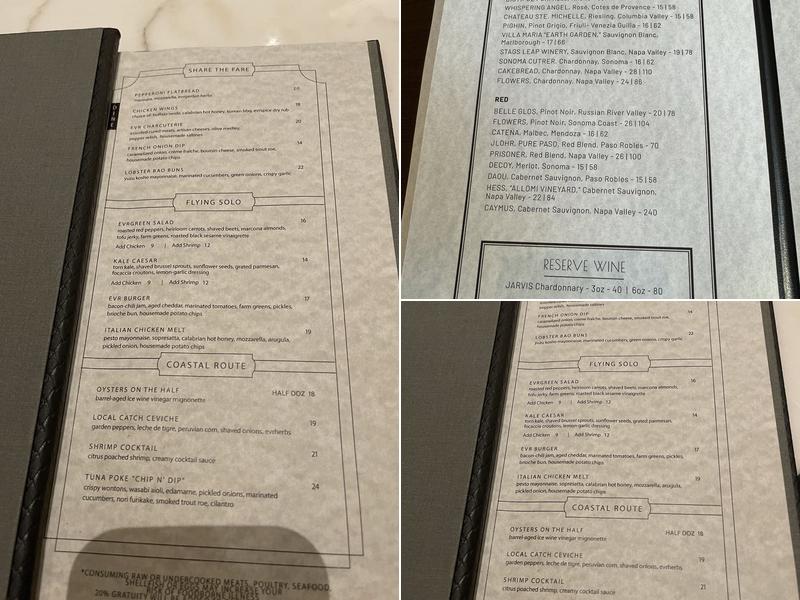 SHARE THE FARE
PEPPERONI FLATBREAD 20
CHICKEN WINGS 18
choice of: buffalo swida, calabrian hot honey, korean bbq, evrspice dry rub
EVR CHARCUTERIE 20
assorted cured meats, artisan cheeses, olive medley,
pepper relish, housemade saltines
FRENCH ONION DIP 14
caramelized onion, creme fraiche, boursin cheese, smoked trout roe,
housemade potato chips
LOBSTER BAO BUNS 22
yuzu kosho mayonnaise, marinated cucumbers, green onions, crispy garlic
DINE
FLYING SOLO
EVRGREEN SALAD 16
roasted red peppers, heirloom carrots, shaved beets, marcona almonds,
tofu jerky, farm greens, roasted black sesame vinaigrette
Add Chicken 9 | Add Shrimp 12
KALE CAESAR 14
torn kale, shaved brussel sprouts, sunflower seeds, grated parmesan,
focaccia croutons, lemon-garlic dressing
Add Chicken 9 | Add Shrimp 12
EVR BURGER 17
bacon-chili jam, aged cheddar, marinated tomatoes, farm greens, pickles,
brioche bun, housemade potato chips
ITALIAN CHICKEN MELT 19
pesto mayonnaise, sopresatta, calabrian hot honey, mozzarella, arugula,
pickled onion, housemade potato chips
COASTAL ROUTE
OYSTERS ON THE HALF HALF DOZ 18
barrel-aged ice wine vinegar mignonette
LOCAL CATCH CEVICHE 19
garden peppers, leche de tigre, peruvian corn, shaved onions, evrherbs
SHRIMP COCKTAIL 21
citrus poached shrimp, creamy cocktail sauce
TUNA POKE "CHIP N' DIP" 24
crispy wontons, wasabi aioli, edamame, pickled onions, marinated
cucumbers, nori furikake, smoked trout roe, cilantro
*CONSUMING RAW OR UNDERCOOKED MEATS, POULTRY, SEAFOOD,
SHELLFISH OR EGGS MAY INCREASE YOUR
RISK OF FOODBORNE ILLNESS
20% GRATUITY WILL BE
WHISPERING ANGEL, Rosé, Cotes de Provence - 15|58
CHATEAU STE. MICHELLE, Riesling, Columbia Valley - 15|58
PIGHIN, Pinot Grigio, Friuli-Venezia Guilia - 16|62
VILLA MARIA "EARTH GARDEN," Sauvignon Blanc,
Marlborough - 17|66
STAGS LEAP WINERY, Sauvignon Blanc, Napa Valley - 19|78
SONOMA CUTRER, Chardonnay, Sonoma - 16|62
CAKEBREAD, Chardonnay, Napa Valley - 28|110
FLOWERS, Chardonnay, Napa Valley - 24|86
RED
BELLE GLOS, Pinot Noir, Russian River Valley - 20|78
FLOWERS, Pinot Noir, Sonoma Coast - 26|104
CATENA, Malbec, Mendoza - 16|62
JLOHR, PURE PASO, Red Blend, Paso Robles - 70
PRISONER, Red Blend, Napa Valley - 26|100
DECOY, Merlot, Sonoma - 15|58
DAOU, Cabernet Sauvignon, Paso Robles - 15|58
HESS, "ALLOMI VINEYARD," Cabernet Sauvignon,
Napa Valley - 22|84
CAYMUS, Cabernet Sauvignon, Napa Valley - 240
RESERVE WINE
JARVIS Chardonnay - 3oz - 40 | 6oz - 80
FRENCH ONION DIP 14
caramelized onion, creme fraiche, boursin cheese, smoked trout roe,
housemade potato chips
LOBSTER BAO BUNS 22
yuzu kosho mayonnaise, marinated cucumbers, green onions, crispy garlic
FLYING SOLO
EVRGREEN SALAD 16
roasted red peppers, heirloom carrots, shaved beets, marcona almonds,
tofu jerky, farm greens, roasted black sesame vinaigrette
Add Chicken 9 | Add Shrimp 12
KALE CAESAR 14
torn kale, shaved brussel sprouts, sunflower seeds, grated parmesan,
focaccia croutons, lemon-garlic dressing
Add Chicken 9 | Add Shrimp 12
EVR BURGER 17
bacon-chili jam, aged cheddar, marinated tomatoes, farm greens, pickles,
brioche bun, housemade potato chips
ITALIAN CHICKEN MELT 19
pesto mayonnaise, sopresatta, calabrian hot honey, mozzarella, arugula,
pickled onion, housemade potato chips
COASTAL ROUTE
OYSTERS ON THE HALF HALF DOZ 18
barrel-aged ice wine vinegar mignonette
LOCAL CATCH CEVICHE 19
garden peppers, leche de tigre, peruvian corn, shaved onions, evrherbs
SHRIMP COCKTAIL 21
citrus poached shrimp, creamy cocktail sauce